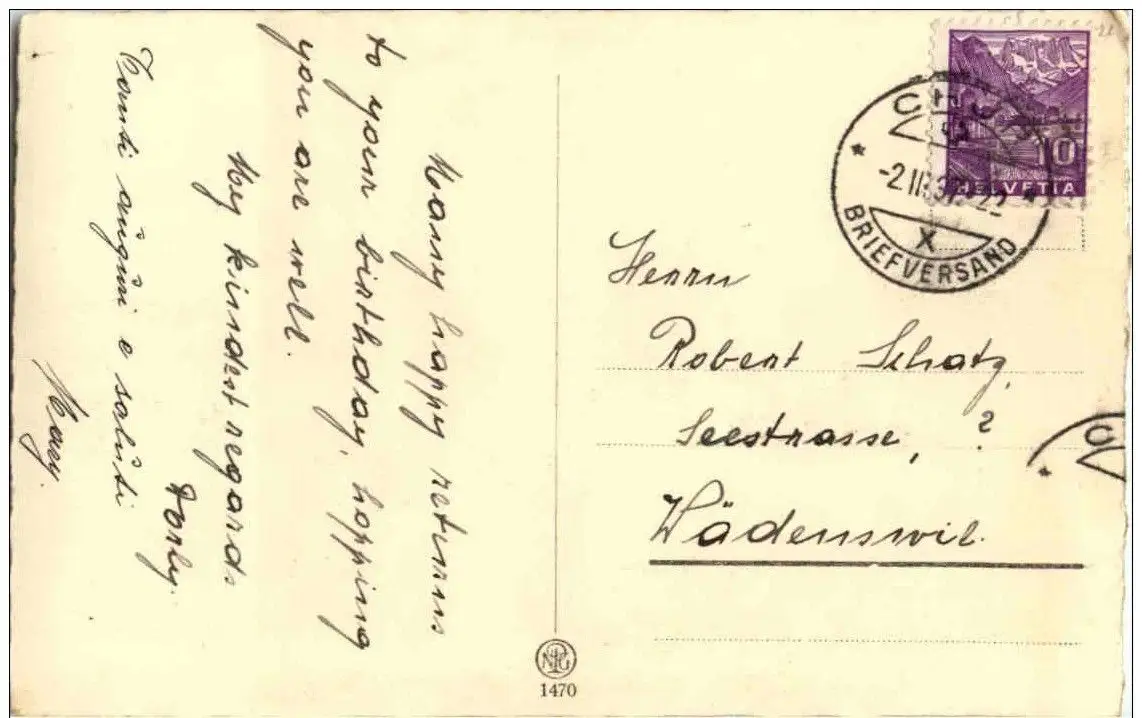 Many happy returns
to your birthday, hopping
you are well.
My kindest regards
Dorly.
Tanti auguri e saluti
Mary.
CHUR
-2.III.37.-22
X
BRIEFVERSAND
10
HELVETIA
Herrn
Robert Schatz,
Seestrasse, ?
Wädenswil.
C
NPG
1470